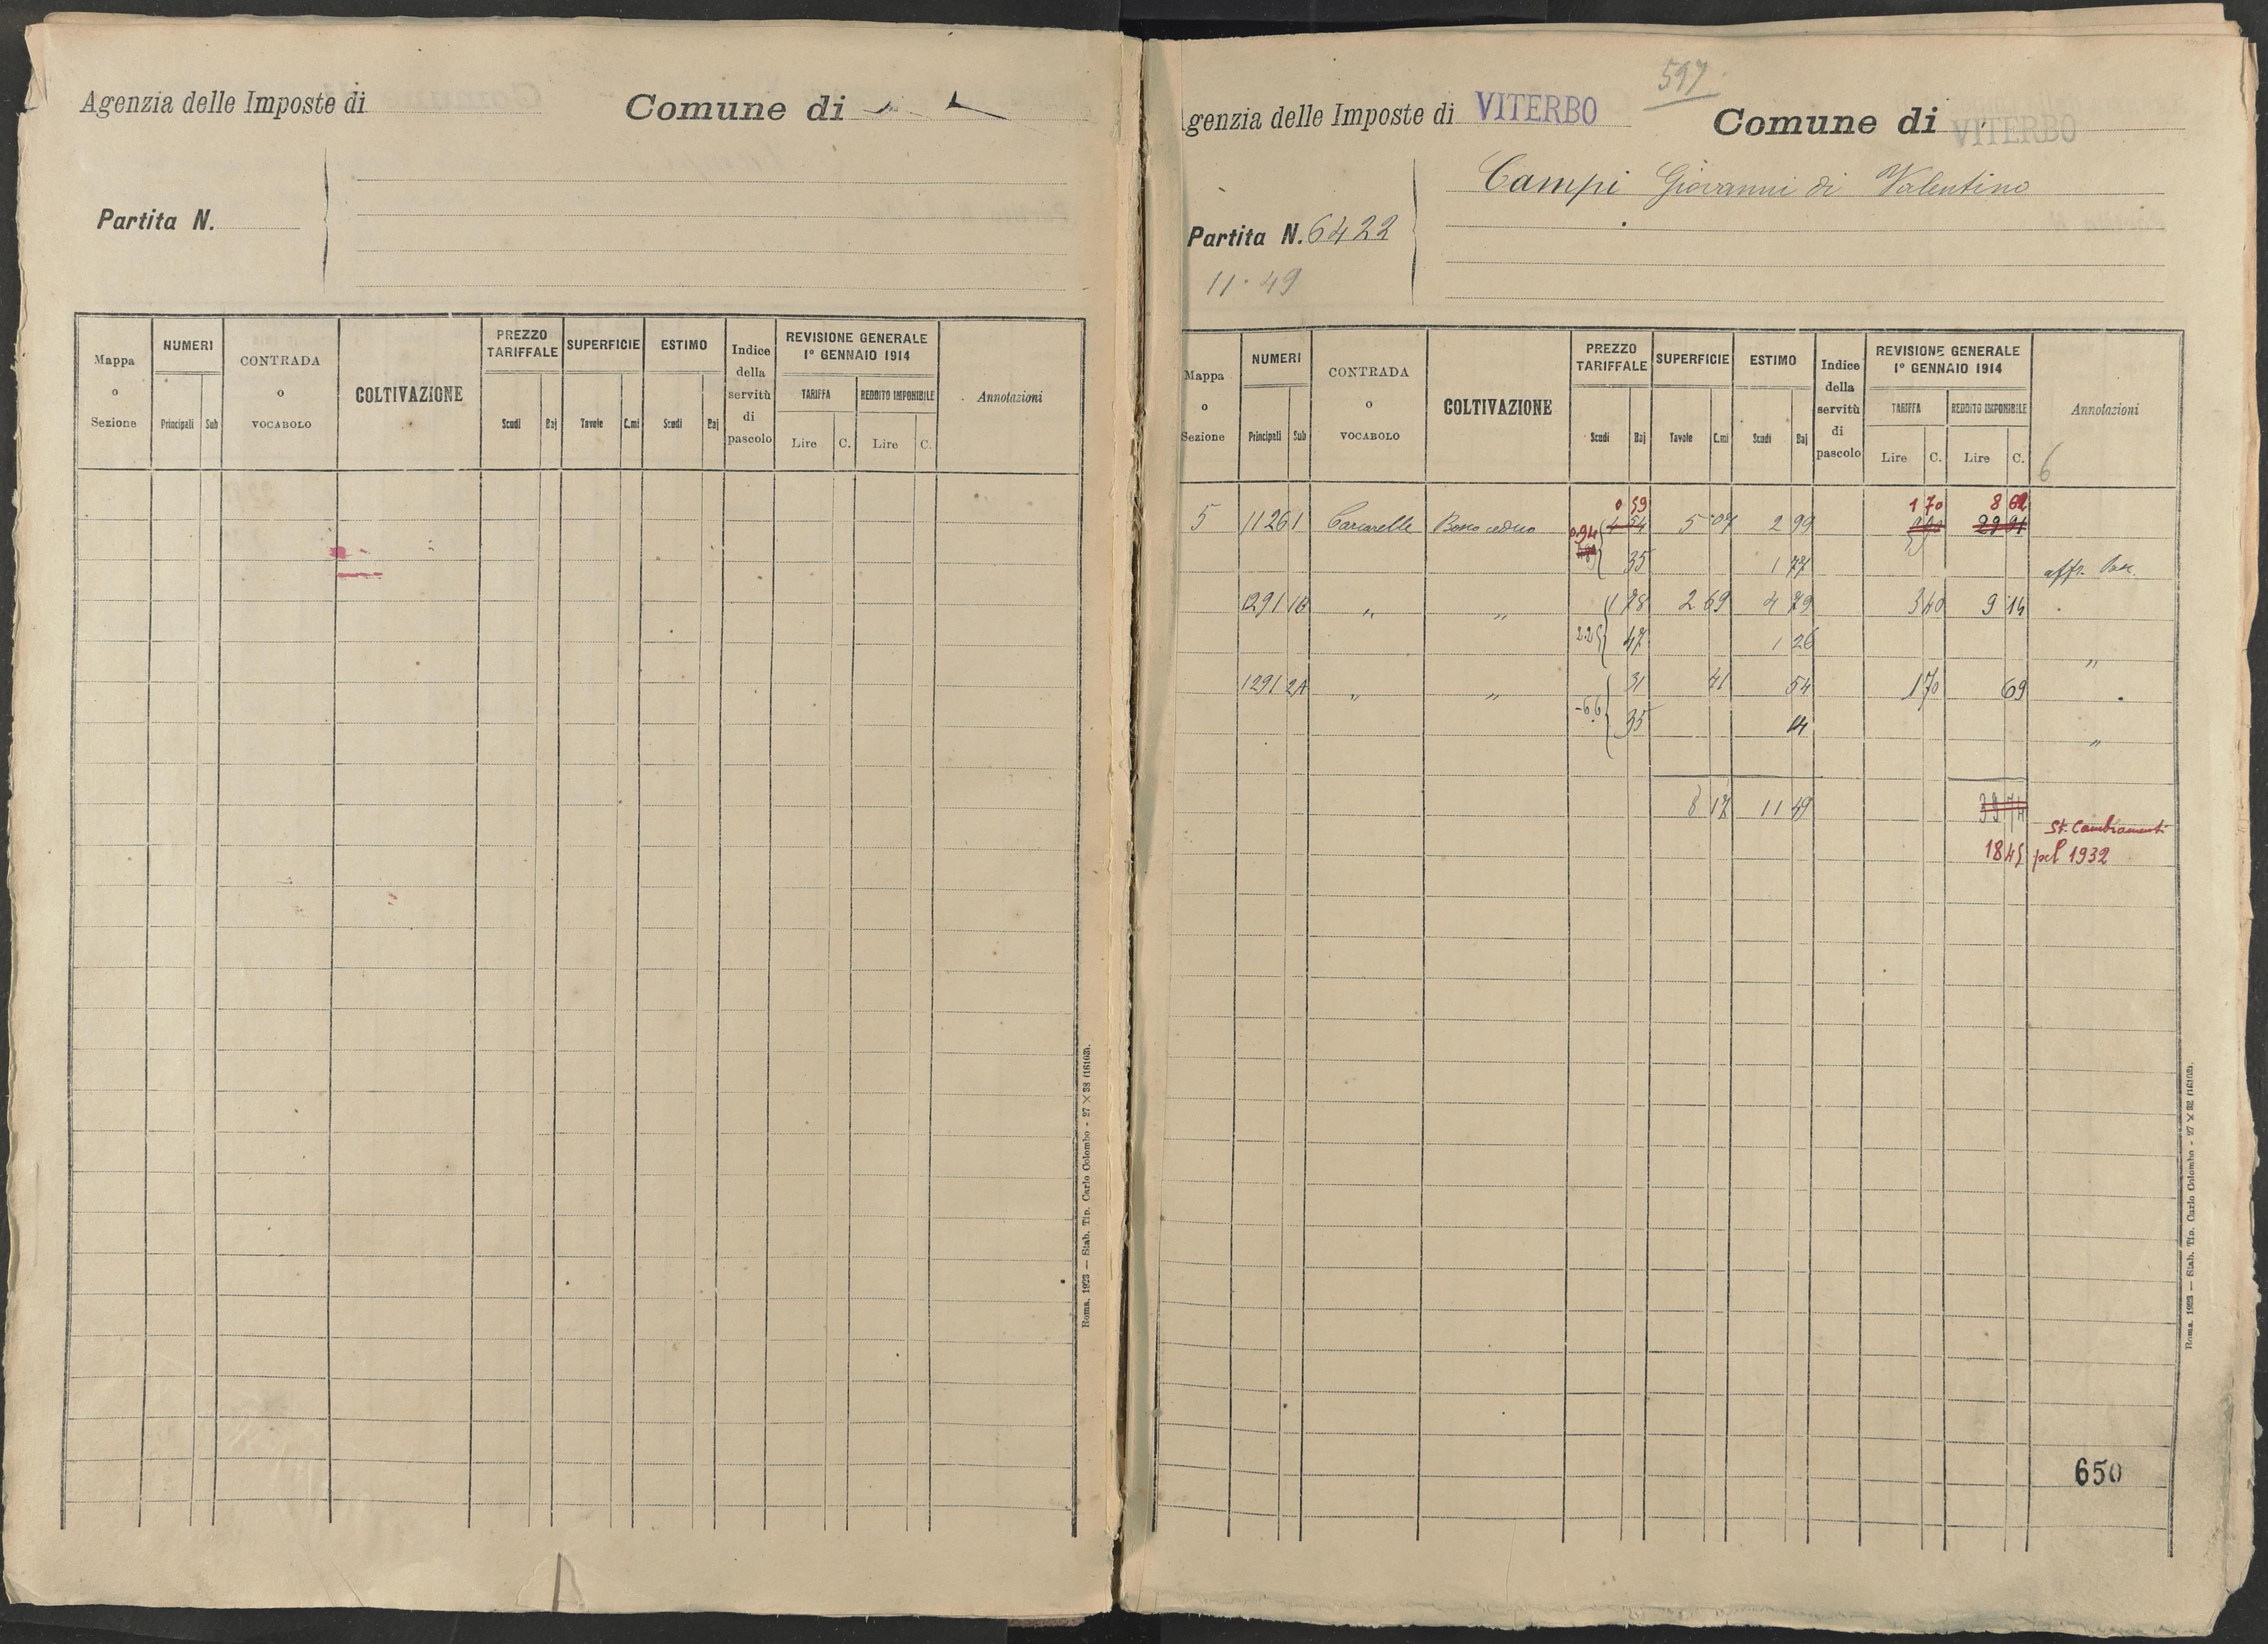 Agenzia delle Imposte di
Comune di
Partita N.
Mappa o Sezione
NUMERI
Principali Sub
CONTRADA o VOCABOLO
COLTIVAZIONE
PREZZO TARIFFALE
Scudi Baj
SUPERFICIE
Tavole C.mi
ESTIMO
Scudi Baj
Indice della servitù di pascolo
REVISIONE GENERALE
1° GENNAIO 1914
TARIFFA REDDITO IMPONIBILE
Lire C. Lire C.
Annotazioni
Roma, 1923 — Stab. Tip. Carlo Colombo - 27 × 38 (16103).
597
genzia delle Imposte di VITERBO
Comune di VITERBO
Campi Giovanni di Valentino
Partita N. 6422
11.49
Mappa o Sezione
NUMERI
Principali Sub
CONTRADA o VOCABOLO
COLTIVAZIONE
PREZZO TARIFFALE
Scudi Baj
SUPERFICIE
Tavole C.mi
ESTIMO
Scudi Baj
Indice della servitù di pascolo
REVISIONE GENERALE
1° GENNAIO 1914
TARIFFA REDDITO IMPONIBILE
Lire C. Lire C.
Annotazioni
6
0 59 1 70 8 62
5 1126 1 Bosco ceduo 5 07 2 99 29 91
0.94 35 1 77
1291 1B " " 1 78 2 69 4 79 3 40 9 14
2.25 47 1 26 "
1291 2A " " 31 41 54 1 70 69
-66 35 14 "
8 17 11 49 39 74
St. Cambiamenti
18 45 pel 1932
650
Roma, 1923 — Stab. Tip. Carlo Colombo - 27 × 32 (16103).